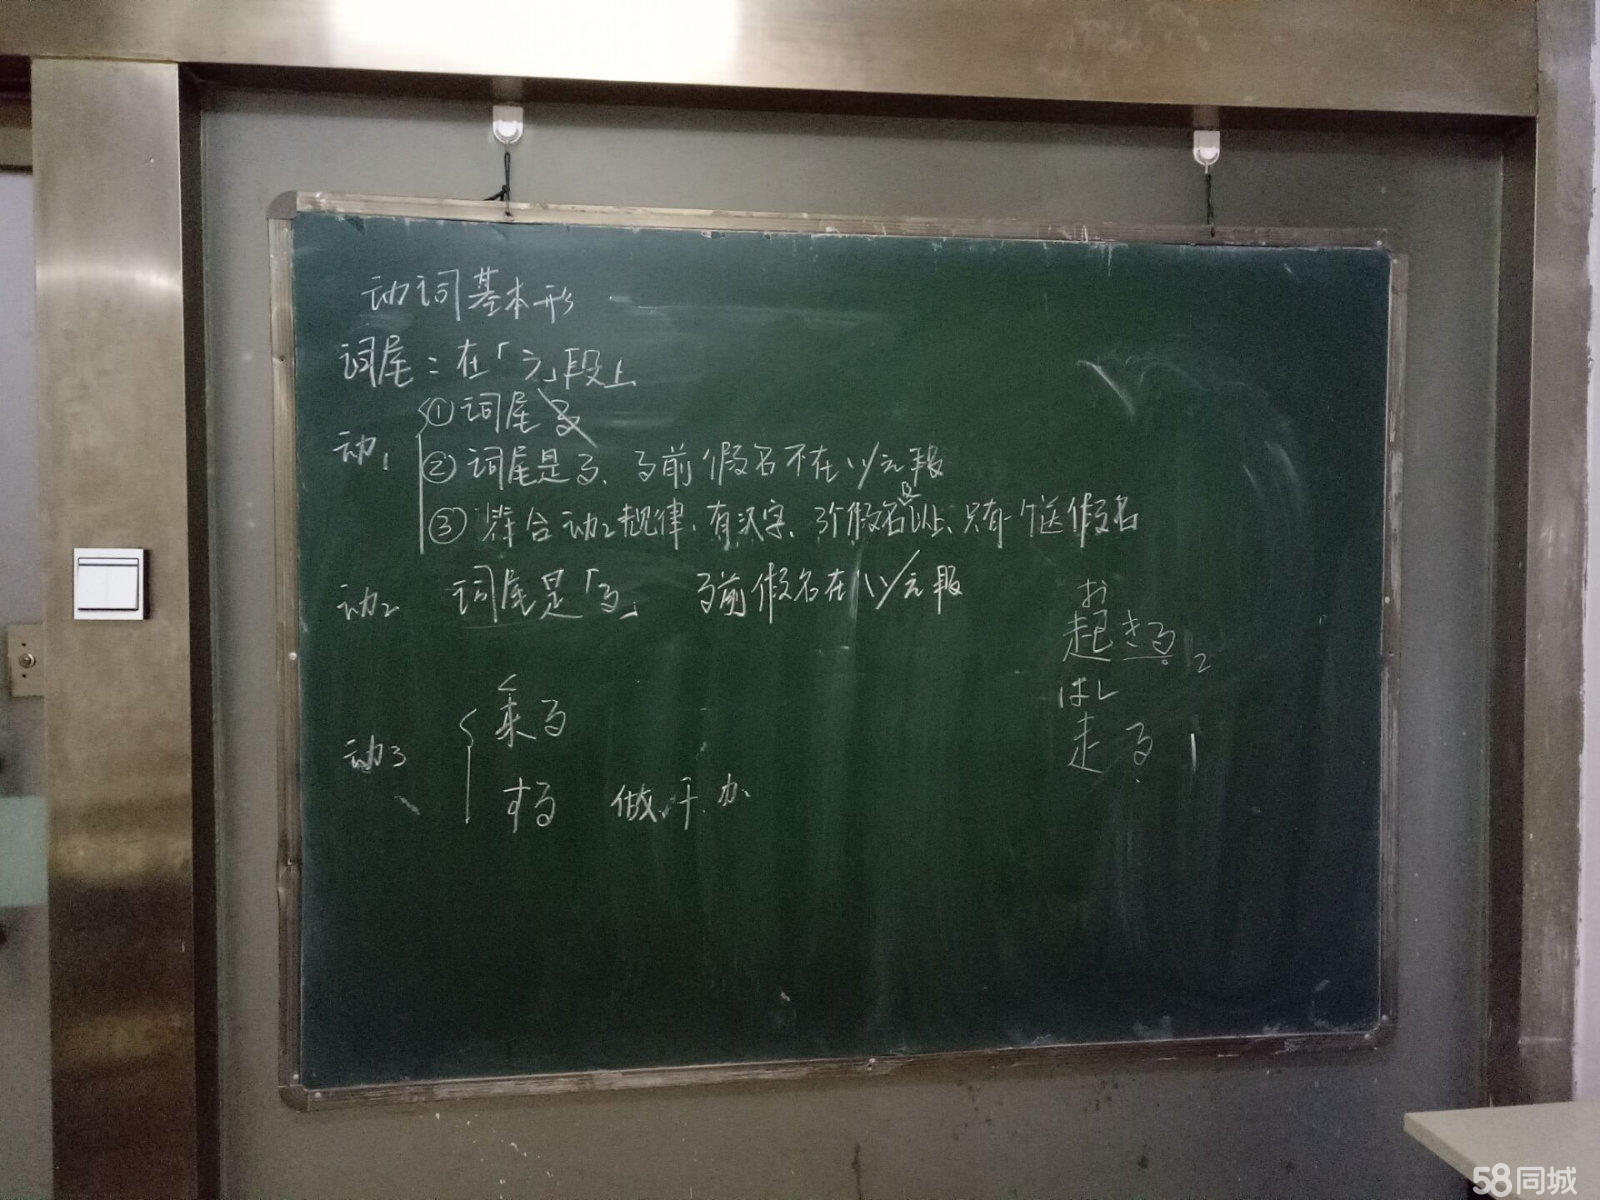 动词基本形
词尾：在「う」段上
动1 ①词尾る
②词尾是る、る前假名不在い/え段
③符合动2规律、有汉字、3个假名及以上、只有一个送假名
动2 词尾是「る」 る前假名在い/え段
动3 く
来る
する 做.干.办
お
起きる 2
はし
走る 1
58同城